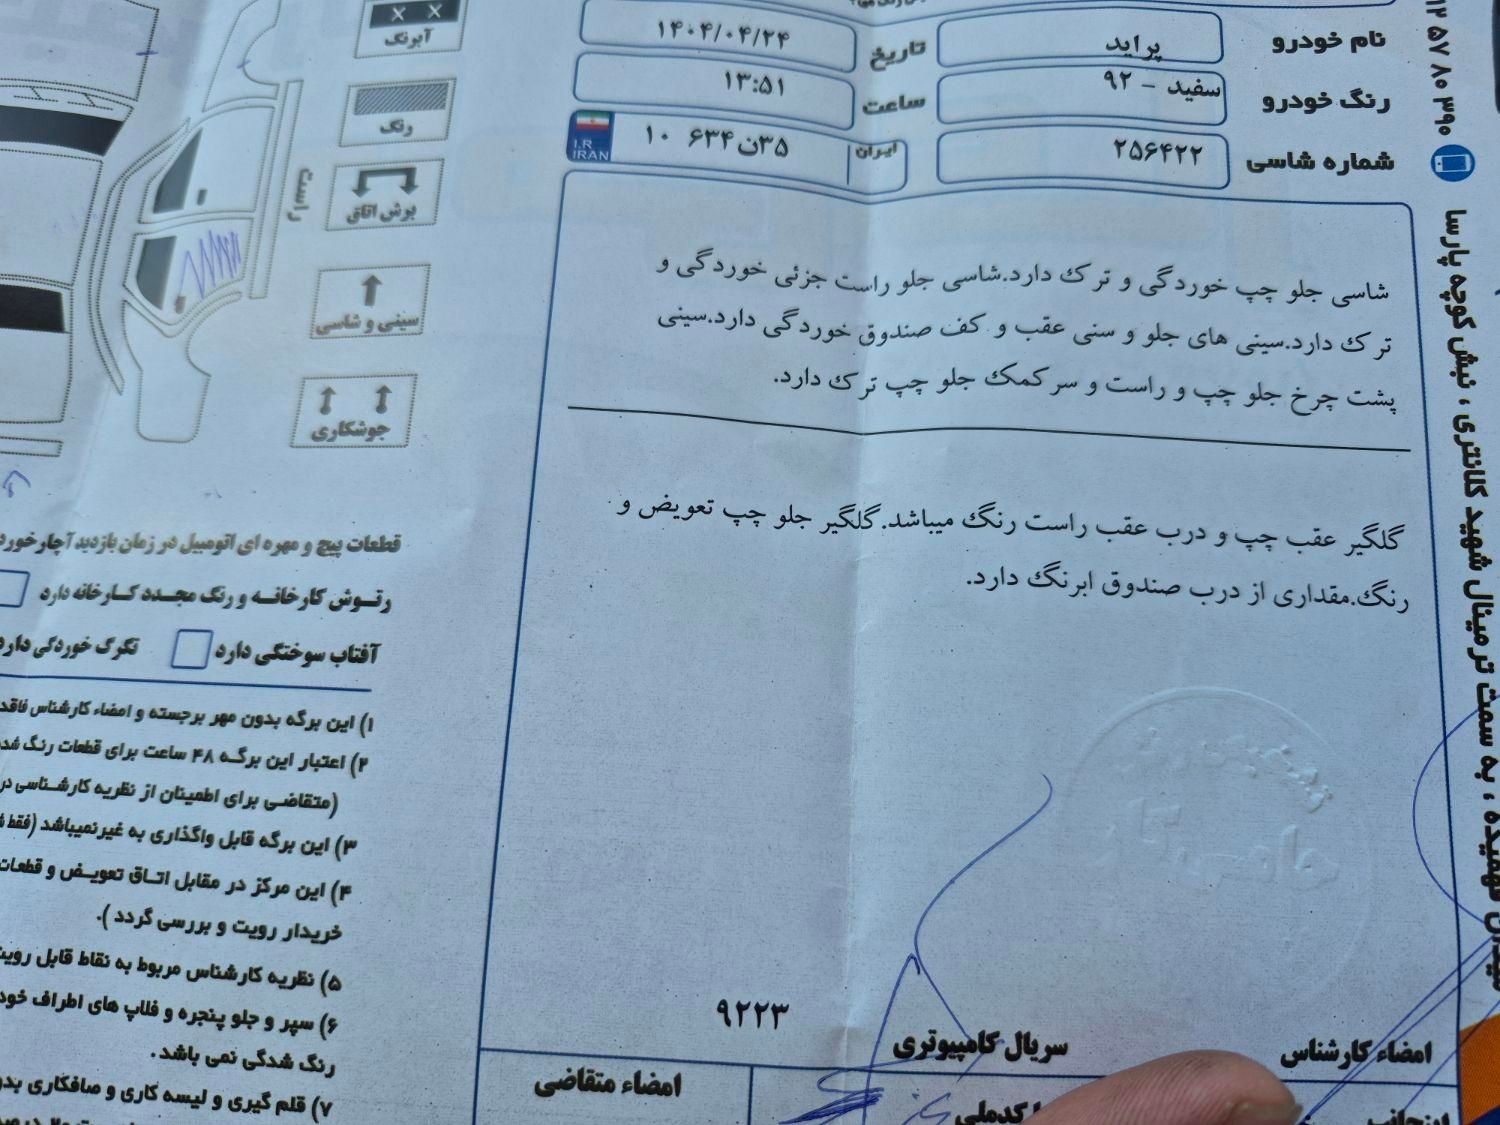 نام خودرو
پراید
تاریخ
۱۴۰۴/۰۴/۲۴
رنگ خودرو
سفید - ۹۲
ساعت
۱۳:۵۱
شماره شاسی
۲۵۶۴۲۲
ایران
۳۵ن۶۳۴ ۱۰
I.R
IRAN
شاسی جلو چپ خوردگی و ترک دارد.شاسی جلو راست جزئی خوردگی و
ترک دارد.سینی های جلو و سنی عقب و کف صندوق خوردگی دارد.سینی
پشت چرخ جلو چپ و راست و سرکمک جلو چپ ترک دارد.
گلگیر عقب چپ و درب عقب راست رنگ میباشد.گلگیر جلو چپ تعویض و
رنگ.مقداری از درب صندوق ابرنگ دارد.
امضاء کارشناس
سریال کامپیوتری
۹۲۲۳
امضاء متقاضی
کدملی
اینجانب
آبرنگ
رنگ
برش اتاق
سینی و شاسی
جوشکاری
راست
قطعات پیچ و مهره ای اتومبیل در زمان بازدید آچارخورد
رتوش کارخانه و رنگ مجدد کارخانه دارد
آفتاب سوختگی دارد
تگرگ خوردگی دارد
۱) این برگه بدون مهر برجسته و امضاء کارشناس فاقد
۲) اعتبار این برگه ۴۸ ساعت برای قطعات رنگ شده
(متقاضی برای اطمینان از نظریه کارشناسی در
۳) این برگه قابل واگذاری به غیرنمیباشد (فقط
۴) این مرکز در مقابل اتاق تعویض و قطعات
خریدار رویت و بررسی گردد ).
۵) نظریه کارشناس مربوط به نقاط قابل رویت
۶) سپر و جلو پنجره و فلاپ های اطراف خود
رنگ شدگی نمی باشد.
۷) قلم گیری و لیسه کاری و صافکاری بدو
۱۲ ۵۷ ۸۰ ۳۹۰
فهمیده ، به سمت ترمینال شهید کلانتری ، نبش کوچه پارسا